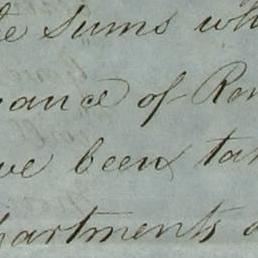 te Sums wh
ance of Ren
ve been tak
partments o